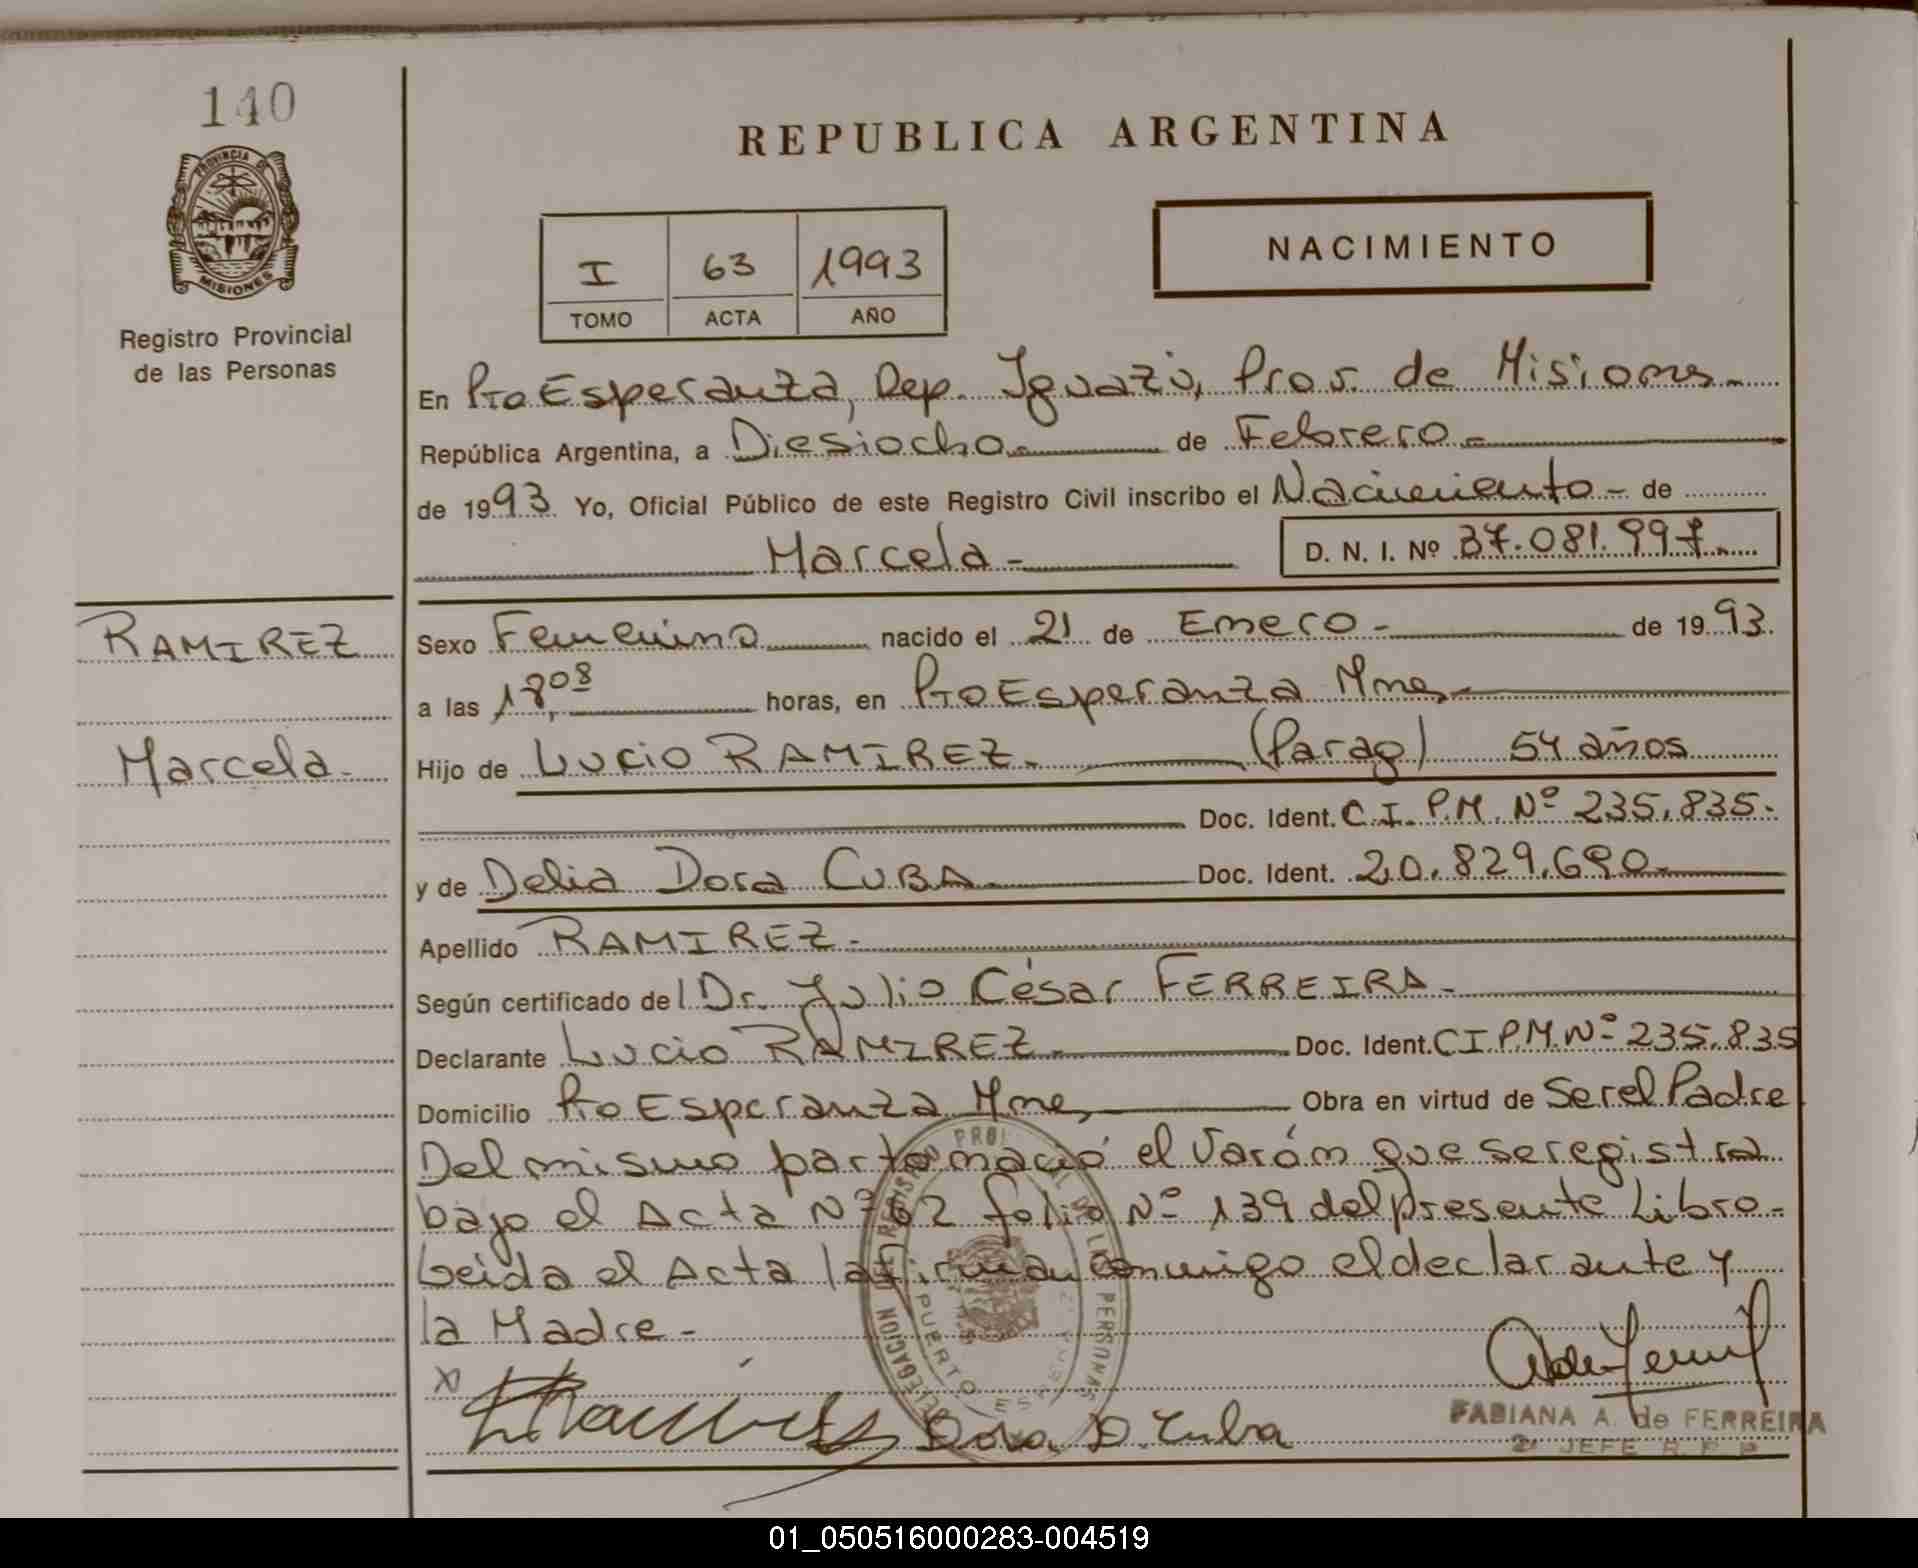 140
PROVINCIA DE
MISIONES
Registro Provincial
de las Personas
REPUBLICA ARGENTINA
I 63 1993
TOMO ACTA AÑO
NACIMIENTO
En Pto Esperanza, Dep. Iguazú, Prov. de Misiones
República Argentina, a Diesiocho de Febrero
de 1993 Yo, Oficial Público de este Registro Civil inscribo el Nacimiento de
Marcela
D. N. I. Nº 37.081.997
RAMIREZ
Marcela
Sexo Femenino nacido el 21 de Enero de 1993.
a las horas, en Pto Esperanza Mnes
Hijo de Lucio RAMIREZ (Parag) 54 años
Doc. Ident. C.I. P.M. Nº 235.835.
y de Delia Dora CUBA Doc. Ident. 20.829.690
Apellido RAMIREZ
Según certificado del Dr. Julio César FERREIRA
Declarante Lucio RAMIREZ Doc. Ident. C I P.M. Nº 235.835
Domicilio Pto Esperanza Mnes Obra en virtud de Ser el Padre
Del mismo parto nació el Varón que se registra
bajo el Acta Nº 62 folio Nº 139 del presente Libro
Leida el Acta la firman conmigo el declarante y
la Madre
DELEGACION DE LAS PERSONAS
PUERTO
Dora D. Cuba
FABIANA A. de FERREIRA
2º JEFE R. P. P.
01_050516000283-004519